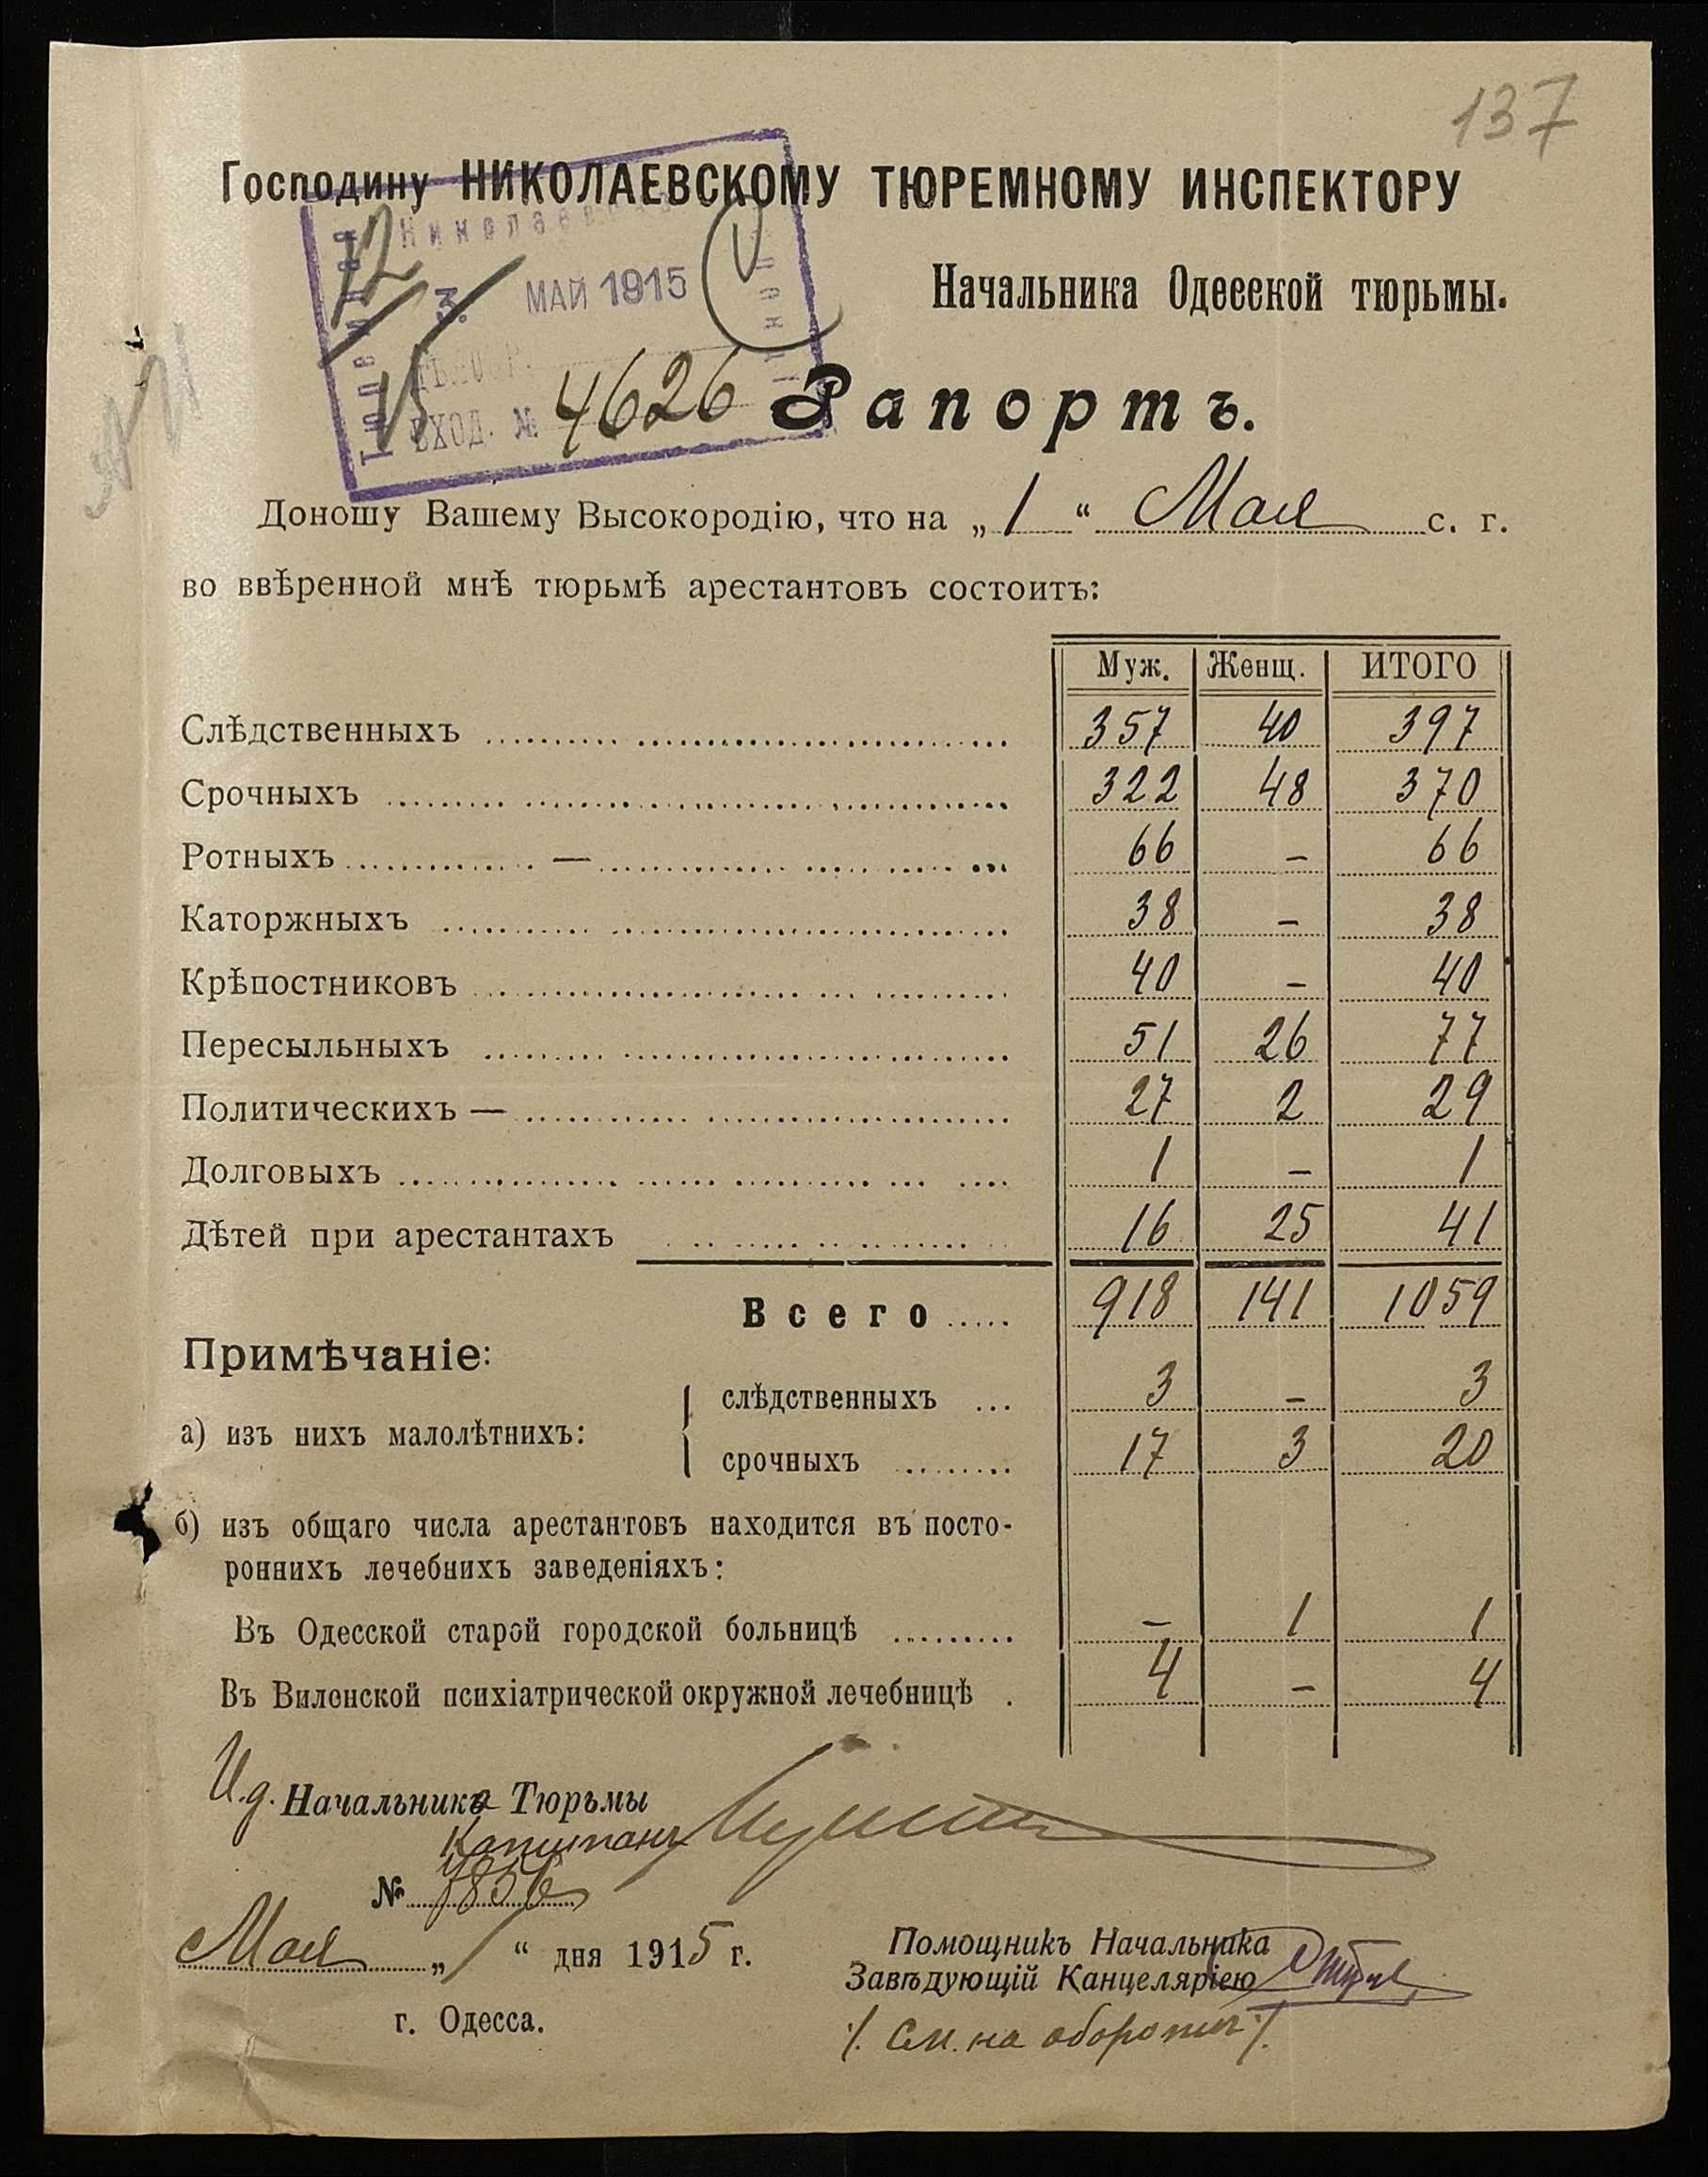 137
Господину НИКОЛАЕВСКОМУ ТЮРЕМНОМУ ИНСПЕКТОРУ
Начальника Одесской тюрьмы.
3. МАЙ 1915
ВХОД. № 4626
Рапортъ.
Доношу Вашему Высокородію, что на „1“ Мая с. г.
во ввѣренной мнѣ тюрьмѣ арестантовъ состоитъ:
Муж. Женщ. ИТОГО
Слѣдственныхъ 357 40 397
Срочныхъ 322 48 370
Ротныхъ — 66 – 66
Каторжныхъ 38 – 38
Крѣпостниковъ 40 – 40
Пересыльныхъ 51 26 77
Политическихъ — 27 2 29
Долговыхъ 1 – 1
Дѣтей при арестантахъ 16 25 41
Всего 918 141 1059
Примѣчаніе:
а) изъ нихъ малолѣтнихъ:
слѣдственныхъ 3 – 3
срочныхъ 17 3 20
б) изъ общаго числа арестантовъ находится въ посто-
роннихъ лечебнихъ заведеніяхъ:
Въ Одесской старой городской больницѣ – 1 1
Въ Виленской психіатрической окружной лечебницѣ 4 – 4
И.д. Начальника Тюрьмы
Капитанъ
№ 7856
Мая „1“ дня 1915 г.
г. Одесса.
Помощникъ Начальника
Завѣдующій Канцеляріею
/. См. на оборотѣ /.